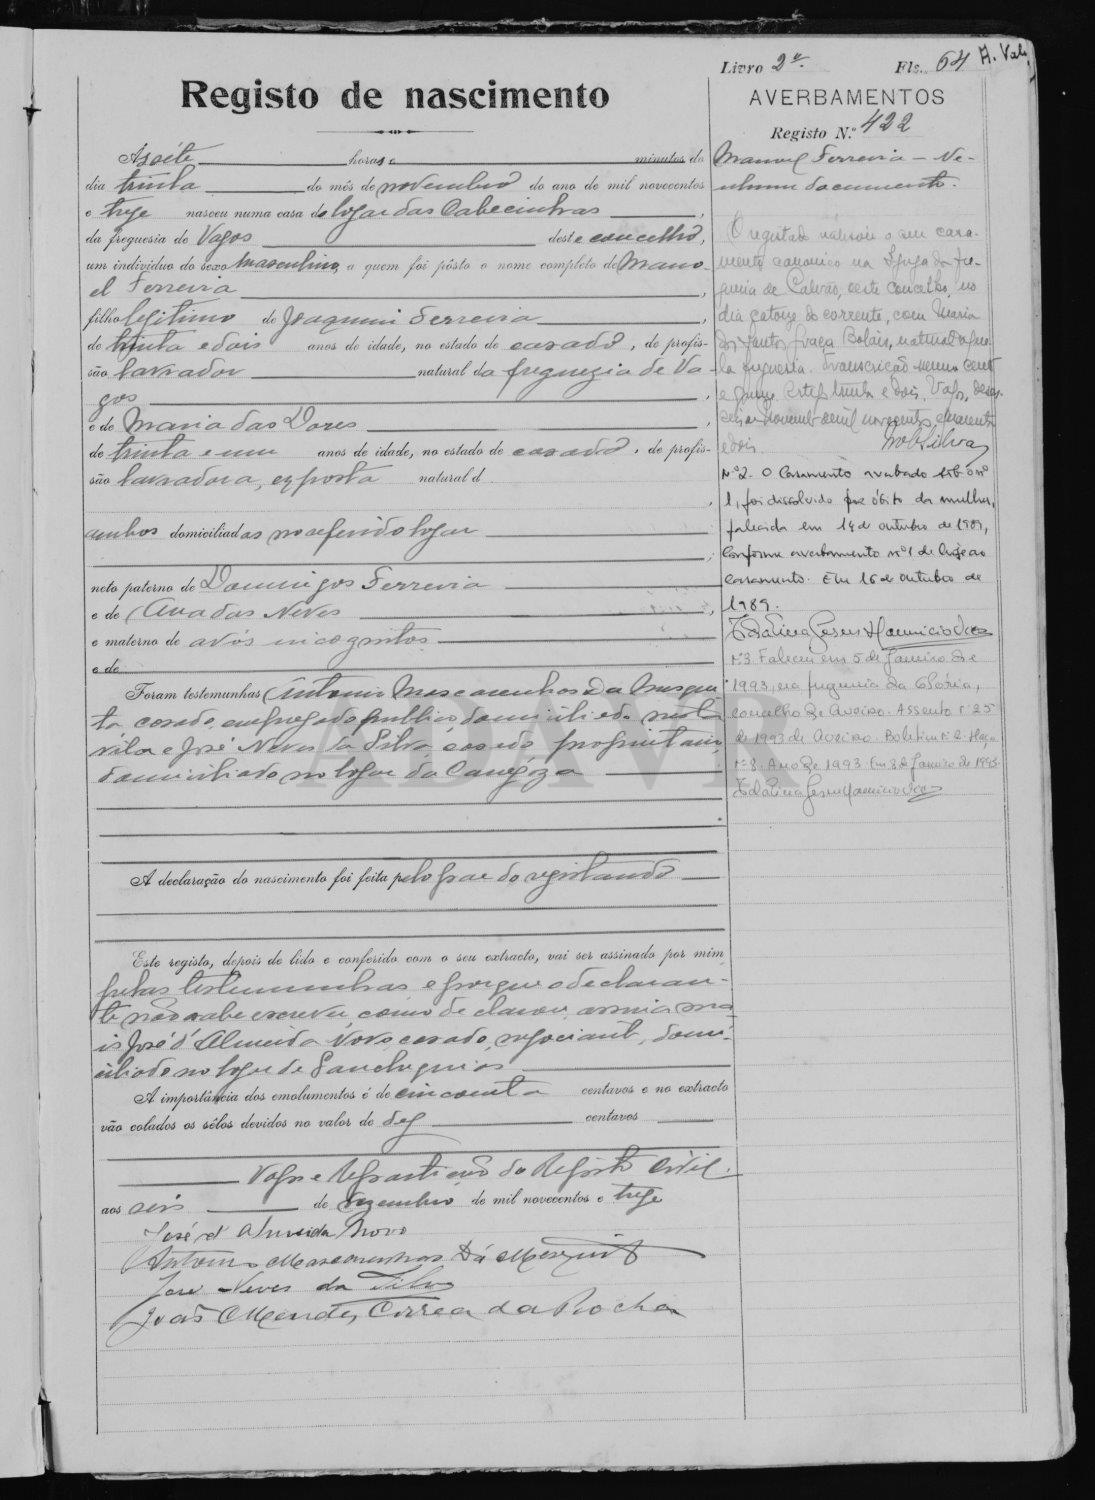 Livro 2º. Fls. 64 A. Val.
Registo de nascimento
AVERBAMENTOS
Registo N.º 422
Ás sete horas e minutos do
dia trinta do mês de novembro do ano de mil novecentos
e treze nasceu numa casa do logar das Cabecinhas,
da freguesia de Vagos deste concelho,
um individuo do sexo masculino, a quem foi pôsto o nome completo de Mano-
el Ferreira,
filho legitimo de Joaquim Ferreira,
de trinta e dois anos de idade, no estado de casado, de profis-
são lavrador natural da freguezia de Va-
gos,
e de Maria das Dores,
de trinta e um anos de idade, no estado de casada, de profis-
são lavradora, exposta natural d
,
ambos domiciliados no referido logar
;
neto paterno de Domingos Ferreira
e de Ana das Neves,
e materno de avós incognitos
e de
Foram testemunhas Antonio Mascarenhas Da Mesqui-
ta, casado, empregado publico, domiciliado nesta
vila e José Neves da Silva, casado, proprietario,
domiciliado no logar da Can
.
A declaração do nascimento foi feita pelo pae do registando
Este registo, depois de lido e conferido com o seu extracto, vai ser assinado por mim,
pelas testemunhas e porque o declaran-
te não sabe escrever como declarou, assina ma-
is José d'Almeida Novo, casado, negociante, domi-
ciliado no logar de
A importância dos emolumentos é de cincoenta centavos e no extracto
vão colados os sêlos devidos no valor de dez centavos
Vagos e Repartição do Registo Civil.
aos seis de dezembro de mil novecentos e treze
José d'Almeida Novo
Antonio Mascarenhas Dá Mesquita
José Neves da Silva
João Mendes Correa da Rocha
Manuel Ferreira — Ne-
nhum documento.
O registado realisou o seu casa-
mento canonico na Igreja da fre-
guesia de Calvão, deste concelho, no
dia catorze do corrente, com Maria
dos Santos Graça Bolais, natural daque-
la freguesia. Transcrição numero cento
e quinze. Vagos, dezas-
seis de novembro de mil novecentos quarenta
e dois.
Silva
Nº2 - O Casamento averbado sob o nº
1, foi dissolvido por óbito da mulher,
falecida em 14 de outubro de 1989,
conforme averbamento nº1 de
casamento. Em 16 de outubro de
1989.
Nº3. Faleceu em 5 de Janeiro de
1993, na freguesia da Glória,
concelho de Aveiro. Assento nº25
de 1993 de Aveiro. Boletim
Nº 8. Ano de 1993. Em 8 de Janeiro de 1993.
ADAVR